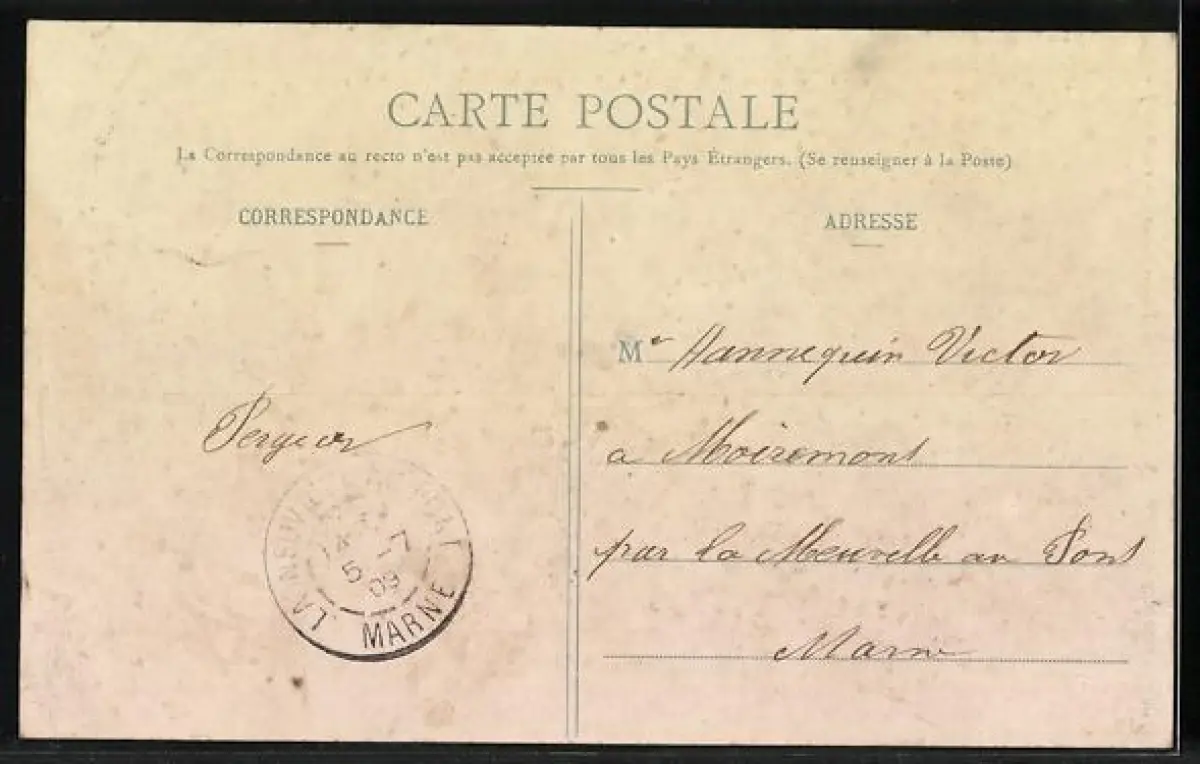 CARTE POSTALE
La Correspondance au recto n'est pas acceptée par tous les Pays Étrangers. (Se renseigner à la Poste)
CORRESPONDANCE
ADRESSE
Mr Hannequin Victor
a Moiremont
par la Neuville au Pont
Marne
LA NEUVILLE AU PONT
5 09
MARNE